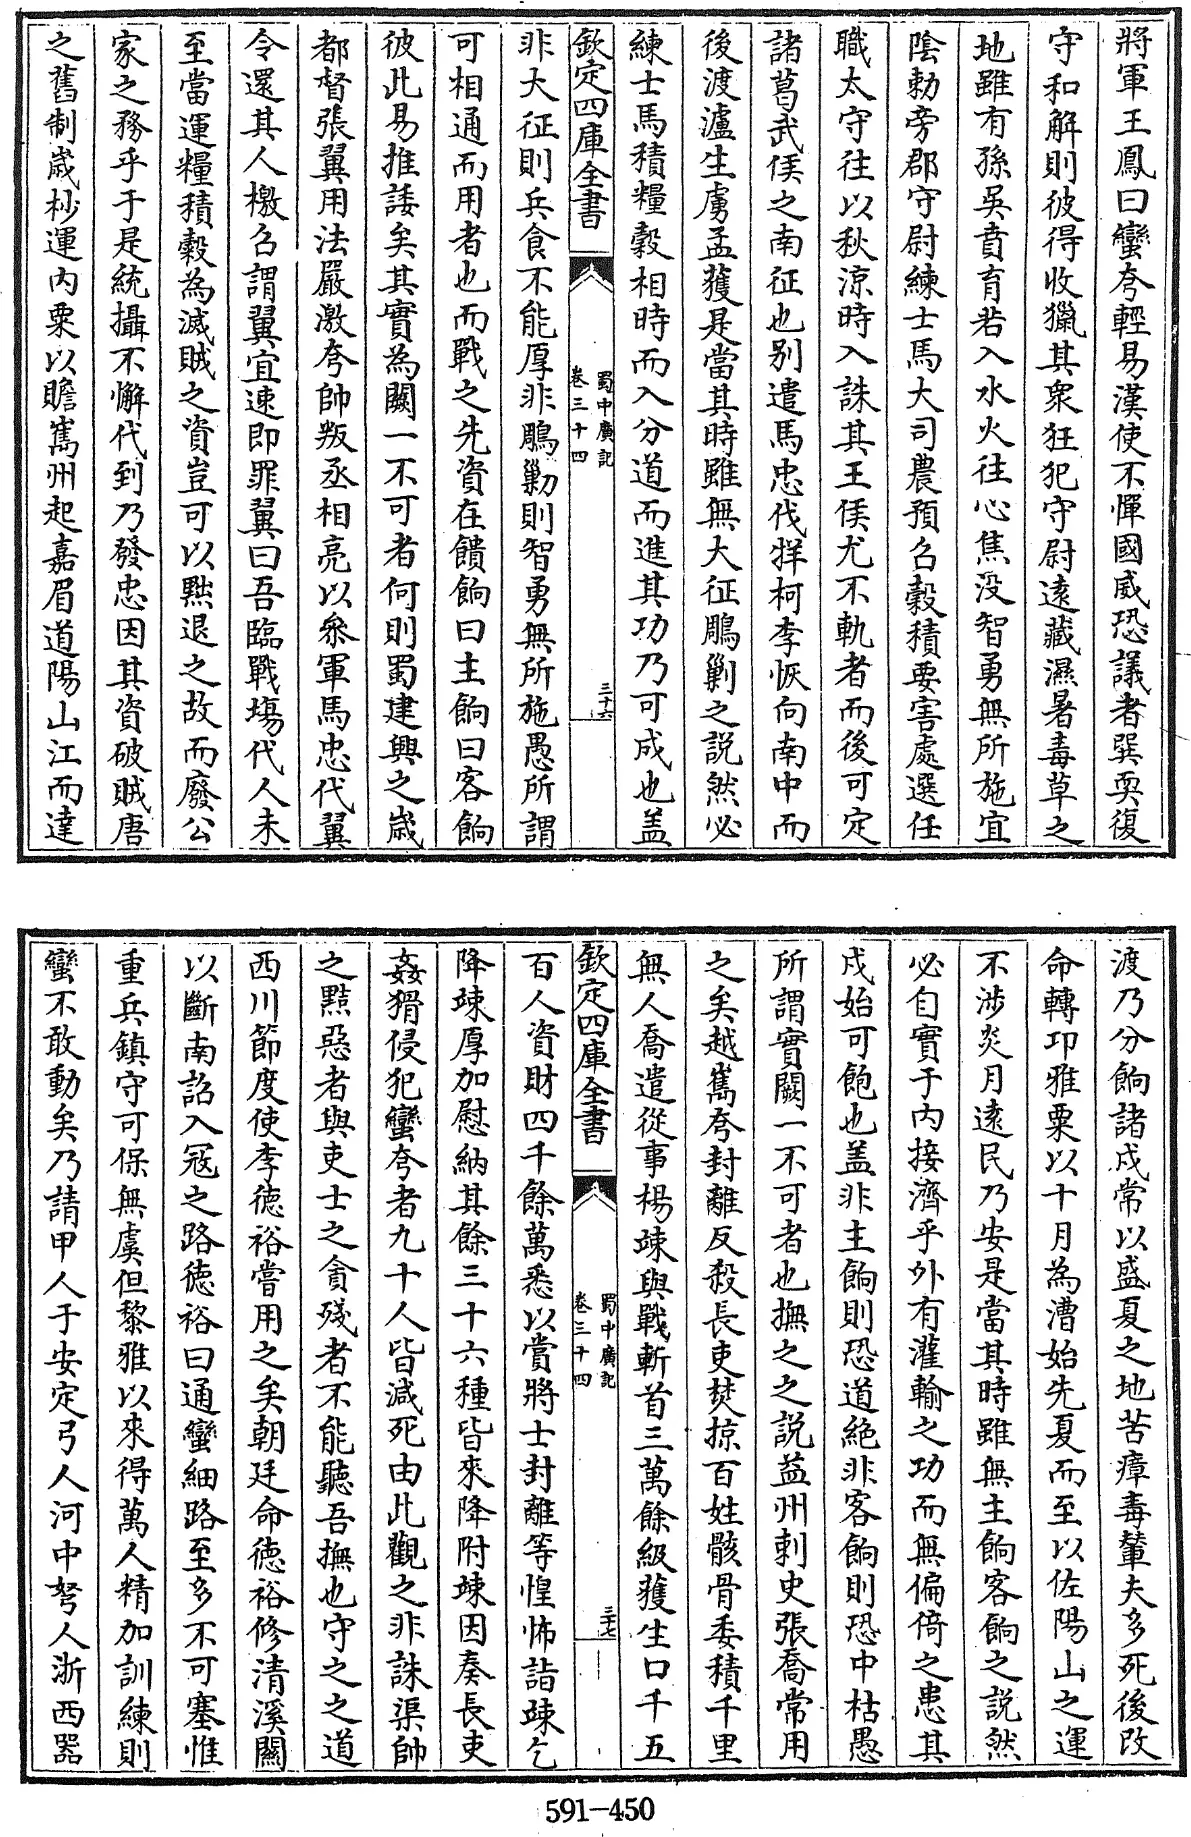 將軍王鳳曰蠻夸輕易漢使不憚國威恐議者㢲耎復
守和解則彼得收獵其衆狂犯守尉逺藏濕暑毒草之
地雖有孫吳賁育若入水火往必焦没智勇無所施宜
隂勅旁郡守尉練士馬大司農預名榖積要害處選任
職太守往以秋涼時入誅其王侯尤不軌者而後可定
諸葛武侯之南征也别遣馬忠伐牂柯李恢向南中而
後渡瀘生虜孟獲是當其時雖無大征鵰剿之説然必
練士馬積糧榖相時而入分道而進其功乃可成也盖
欽定四庫全書
蜀中廣記
卷三十四
三十六
非大征則兵食不能厚非鵰勦則智勇無所施愚所謂
可相通而用者也而戰之先資在饋餉曰主餉曰客餉
彼此易推諉矣其實為闕一不可者何則蜀建興之嵗
都督張翼用法嚴激夸帥叛丞相亮以叅軍馬忠代翼
令還其人檄名謂翼宜速即罪翼曰吾臨戰塲代人未
至當運糧積穀為滅賊之資豈可以黜退之故而廢公
家之務乎于是統攝不懈代到乃發忠因其資破賊唐
之舊制嵗杪運内粟以贍嶲州起嘉眉道陽山江而達
渡乃分餉諸戍常以盛夏之地苦瘴毒輦夫多死後改
命轉卭雅粟以十月為漕始先夏而至以佐陽山之運
不涉炎月逺民乃安是當其時雖無主餉客餉之説然
必自實于内接濟乎外有灌輸之功而無偏倚之患其
戍始可飽也盖非主餉則恐道絶非客餉則恐中枯愚
所謂實闕一不可者也撫之之説益州刺史張喬常用
之矣越嶲夸封離反殺長吏焚掠百姓骸骨委積千里
無人喬遣從事楊竦與戰斬首三萬餘級獲生口千五
欽定四庫全書
蜀中廣記
卷三十四
三十七
百人資財四千餘萬悉以賞將士封離等惶怖詣竦乞
降竦厚加慰納其餘三十六種皆來降附竦因奏長吏
姦猾侵犯蠻夸者九十人皆減死由此觀之非誅渠帥
之黠惡者與吏士之貪殘者不能聽吾撫也守之之道
西川節度使李徳裕嘗用之矣朝廷命徳裕修清溪關
以斷南詔入冦之路徳裕曰通蠻細路至多不可塞惟
重兵鎮守可保無虞但黎雅以來得萬人精加訓練則
蠻不敢動矣乃請甲人于安定弓人河中弩人浙西器
591-450